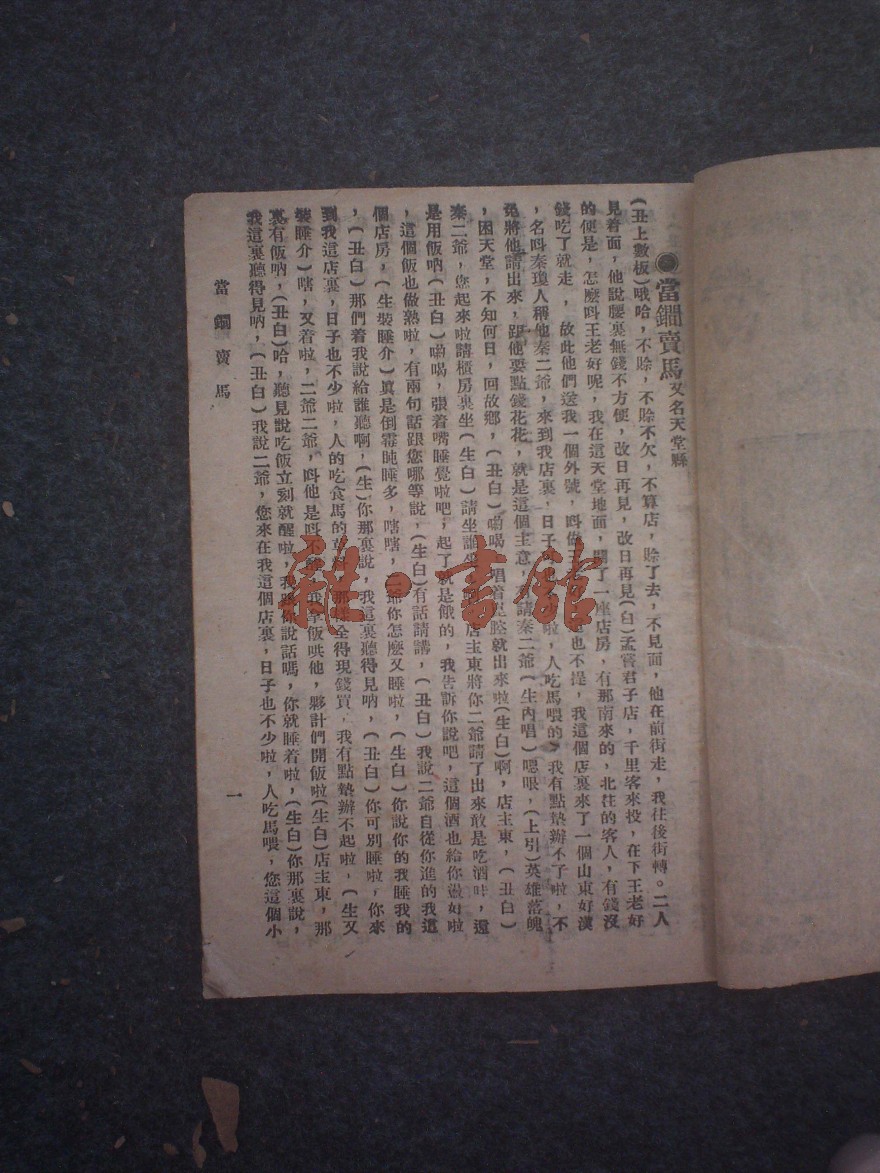 ●當鐧賣馬 又名天堂縣
(丑上數板)哦哈，不賒，不賒不欠，不算店，賒了去，不見面，他在前街走，我往後街轉。二人
見着面，他說腰裏無錢不方便，改日再見，改日再見(白)孟嘗君子店，千里客來投，在下王老好
的便是，怎麽呌王老好呢，我在這天堂地面，開了一座店房，有那南來的，北往的客人，有錢沒
錢吃了就走，故此他們送我一個外號，呌做王 也不提，我這個店裏來了一個山東好漢
，名呌秦瓊人稱他秦二爺，來到我店裏，日子 啦，人吃馬喂的，我有點墊辦不了啦，不
免將他請出來，跟他要點錢花花，就是這個主意， 請秦二爺(生內唱)嗯哏，(上引)英雄落魄
，困天堂，不知何日，回故鄉，(丑白)喲喝，唱着 腔就出來啦(生白)啊，店主東，(丑白)
秦二爺，您起來啦請櫃房裏坐(生白)請坐 店主東將你二爺請了出來敢是吃酒 ，還
是用飯吶(丑白)喲喝，張着嘴睡覺啦吧，起了就是餓的，我告訴你說吧，這個酒也給你 好啦
，這個飯也做熟啦，有兩句話跟您哪等說，(生白)有話請講，(丑白)我說二爺自從你進的我這
個店房，(生裝睡介)真是倒霉盹睡多，嗐嗐，二爺你怎麽又睡啦，(生白)你說你的我睡我的
，(丑白)那們着我說給誰聽啊，(生)你那裏說，我這裏聽得見吶，(丑白)你可別睡啦，你來
到我這店裏，日子也不少啦，人的吃食馬的草料，那樣全得現錢買，我有點墊辦不起啦，(生又
裝睡介)嗐，又着啦，二爺二爺，呌他是呌不醒，我拿飯哄他，夥計們開飯啦(生白)店主東，那
裏有飯吶，(丑白)哈，聽見說吃飯立刻就醒啦，我跟你說話嗎，你就睡着啦，(生白)你那裏說，
我這裏聽得見吶，(丑白)我說二爺，您來在我這個店裏，日子也不少啦，人吃馬喂，您這個小
當鐧賣馬
一
雜·書館